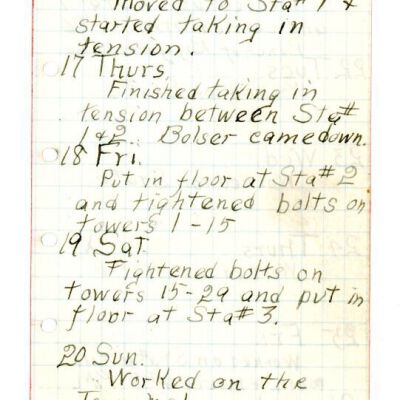 moved to Sta# 1 &
started taking in
tension.
17 Thurs.
Finished taking in
tension between Sta#
1 & 2. Bolser came down.
18 Fri.
Put in floor at Sta# 2
and tightened bolts on
towers 1-15
19 Sat.
Tightened bolts on
towers 15-29 and put in
floor at Sta# 3.
20 Sun.
Worked on the